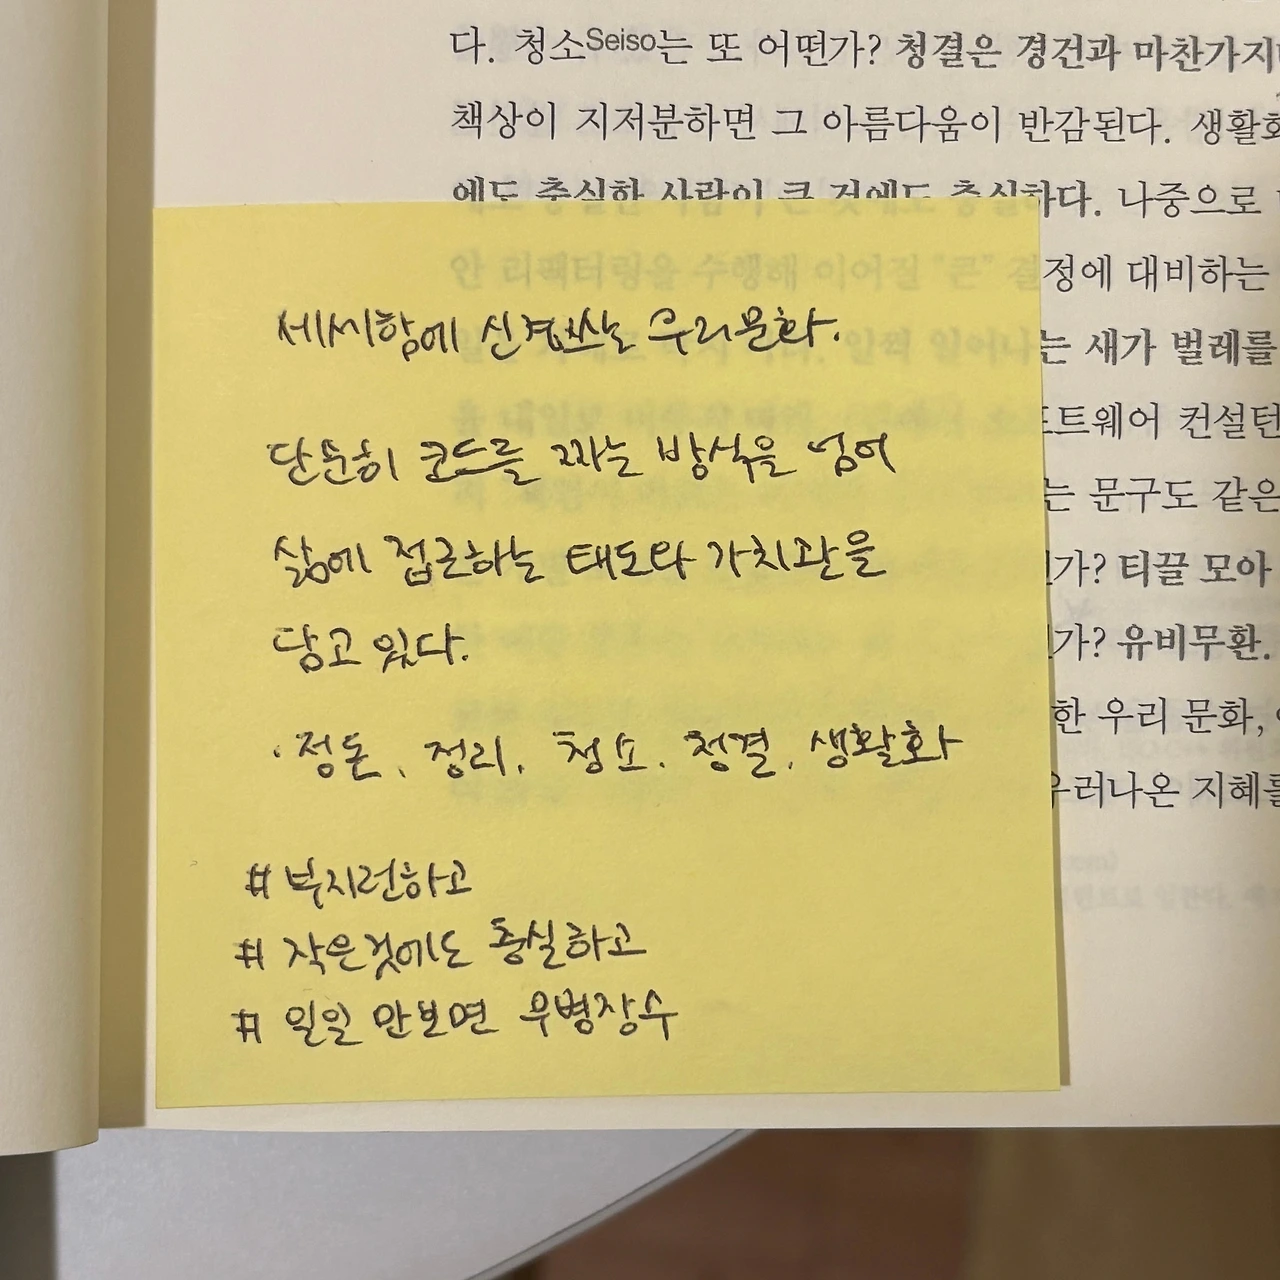 다. 청소Seiso는 또 어떤가? 청결은 경건과 마찬가지
책상이 지저분하면 그 아름다움이 반감된다. 생활화
에도 충실한 사람이 큰 것에도 충실하다. 나중으로
안 리팩터링을 수행해 이어질 "큰" 결정에 대비하는
일찍 일어나는 새가 벌레를
프트웨어 컨설턴
는 문구도 같은
가? 티끌 모아
가? 유비무환.
한 우리 문화,
우러나온 지혜를
세세함에 신경쓰는 우리문화.
단순히 코드를 짜는 방식을 넘어
삶에 접근하는 태도와 가치관을
담고 있다.
· 정돈, 정리, 청소, 청결, 생활화
# 부지런하고
# 작은것에도 충실하고
# 일일 안보면 무병장수